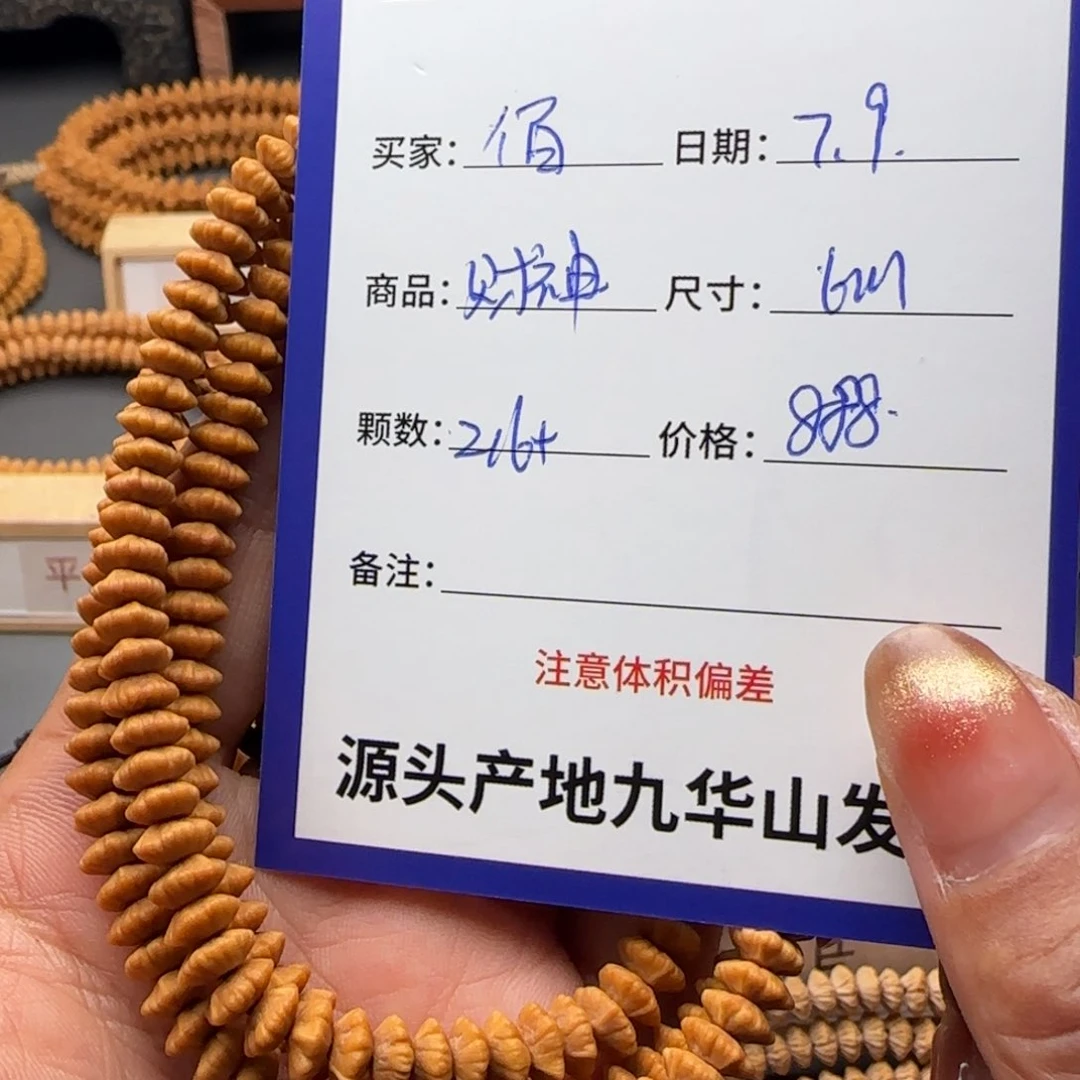 买家：佰 日期：7.9.
商品：财神 尺寸：6m
颗数：216+ 价格：888.
备注：
注意体积偏差
源头产地九华山发
平